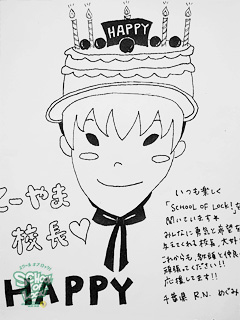 HAPPY
こーやま
校長♡
いつも楽しく
「SCHOOL OF LOCK!」を
聞いています★
みんなに勇気と希望を
与えてくれる校長、大好き
これからも、教頭と校長
頑張ってください!!
応援してます!!
千葉県 R.N. めぐみ
SCHOOL
HAPPY